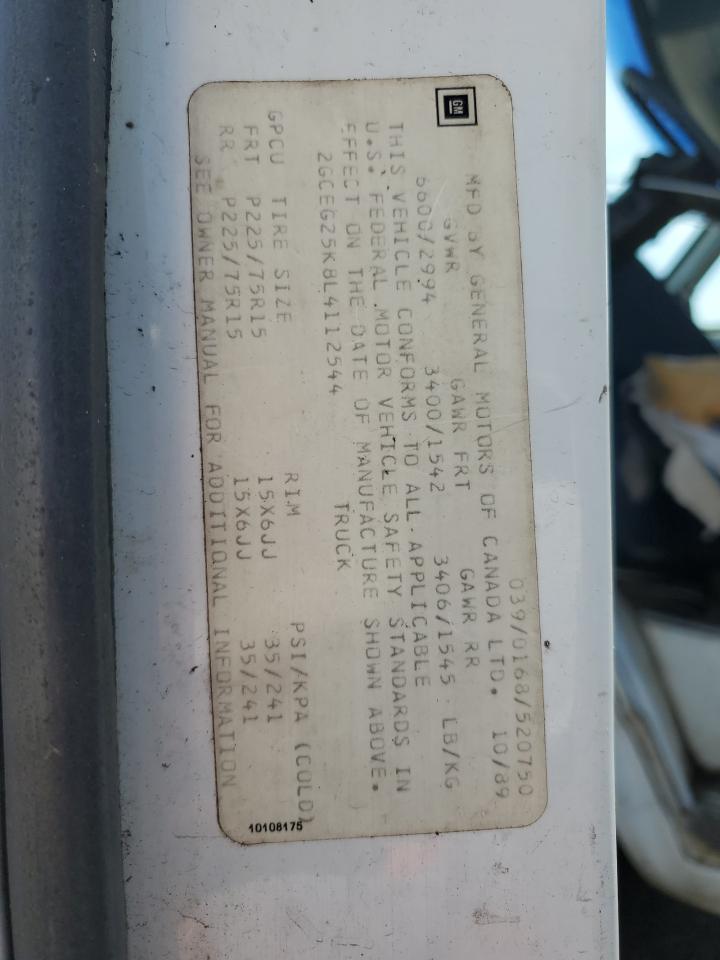 GM
039/0168/520750
MFD BY GENERAL MOTORS OF CANADA LTD. 10/89
GVWR GAWR FRT GAWR RR
6600/2994 3400/1542 3406/1545 LB/KG
THIS VEHICLE CONFORMS TO ALL APPLICABLE
U.S. FEDERAL MOTOR VEHICLE SAFETY STANDARDS IN
EFFECT ON THE DATE OF MANUFACTURE SHOWN ABOVE.
2GCEG25K8L4112544 TRUCK
GPCU TIRE SIZE RIM PSI/KPA (COLD)
FRT P225/75R15 15X6JJ 35/241
RR P225/75R15 15X6JJ 35/241
SEE OWNER MANUAL FOR ADDITIONAL INFORMATION
10108175